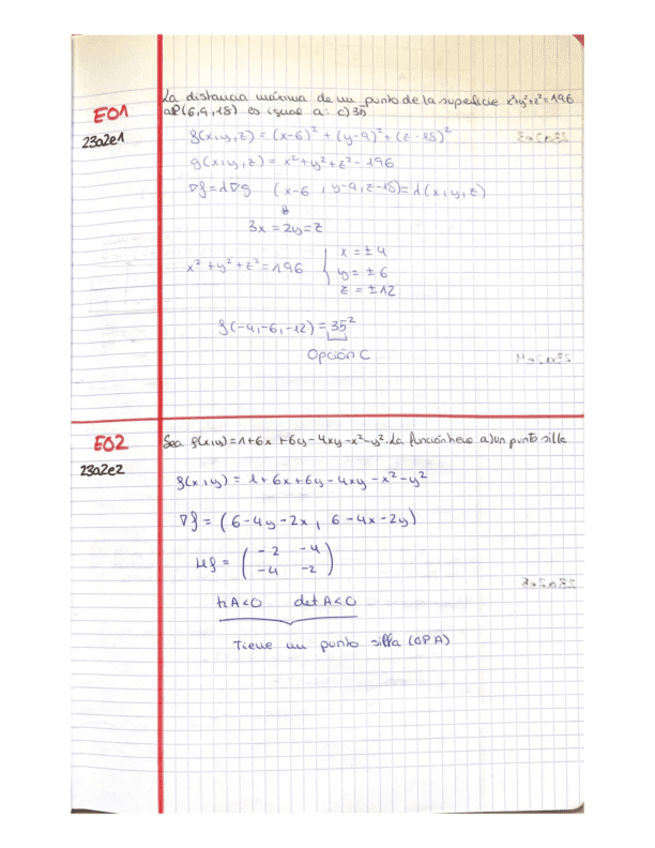 E01
23a2e1
La distancia máxima de un punto de la superficie x²+y²+z²=196
a P(6,9,18) es igual a: c) 35
f(x,y,z) = (x-6)² + (y-9)² + (z-18)²
g(x,y,z) = x² + y² + z² - 196
∇f = λ∇g (x-6, y-9, z-18) = λ(x,y,z)
3x = 2y = z
x² + y² + z² = 196
x = ±4
y = ±6
z = ±12
f(-4,-6,-12) = 35²
Opción C
E02
23a2e2
Sea f(x,y) = 1+6x+6y-4xy-x²-y². La función tiene a) un punto silla
f(x,y) = 1+6x+6y-4xy-x²-y²
∇f = (6-4y-2x, 6-4x-2y)
Hf = ( -2 -4
-4 -2 )
trA<0 det A<0
Tiene un punto silla (OP A)